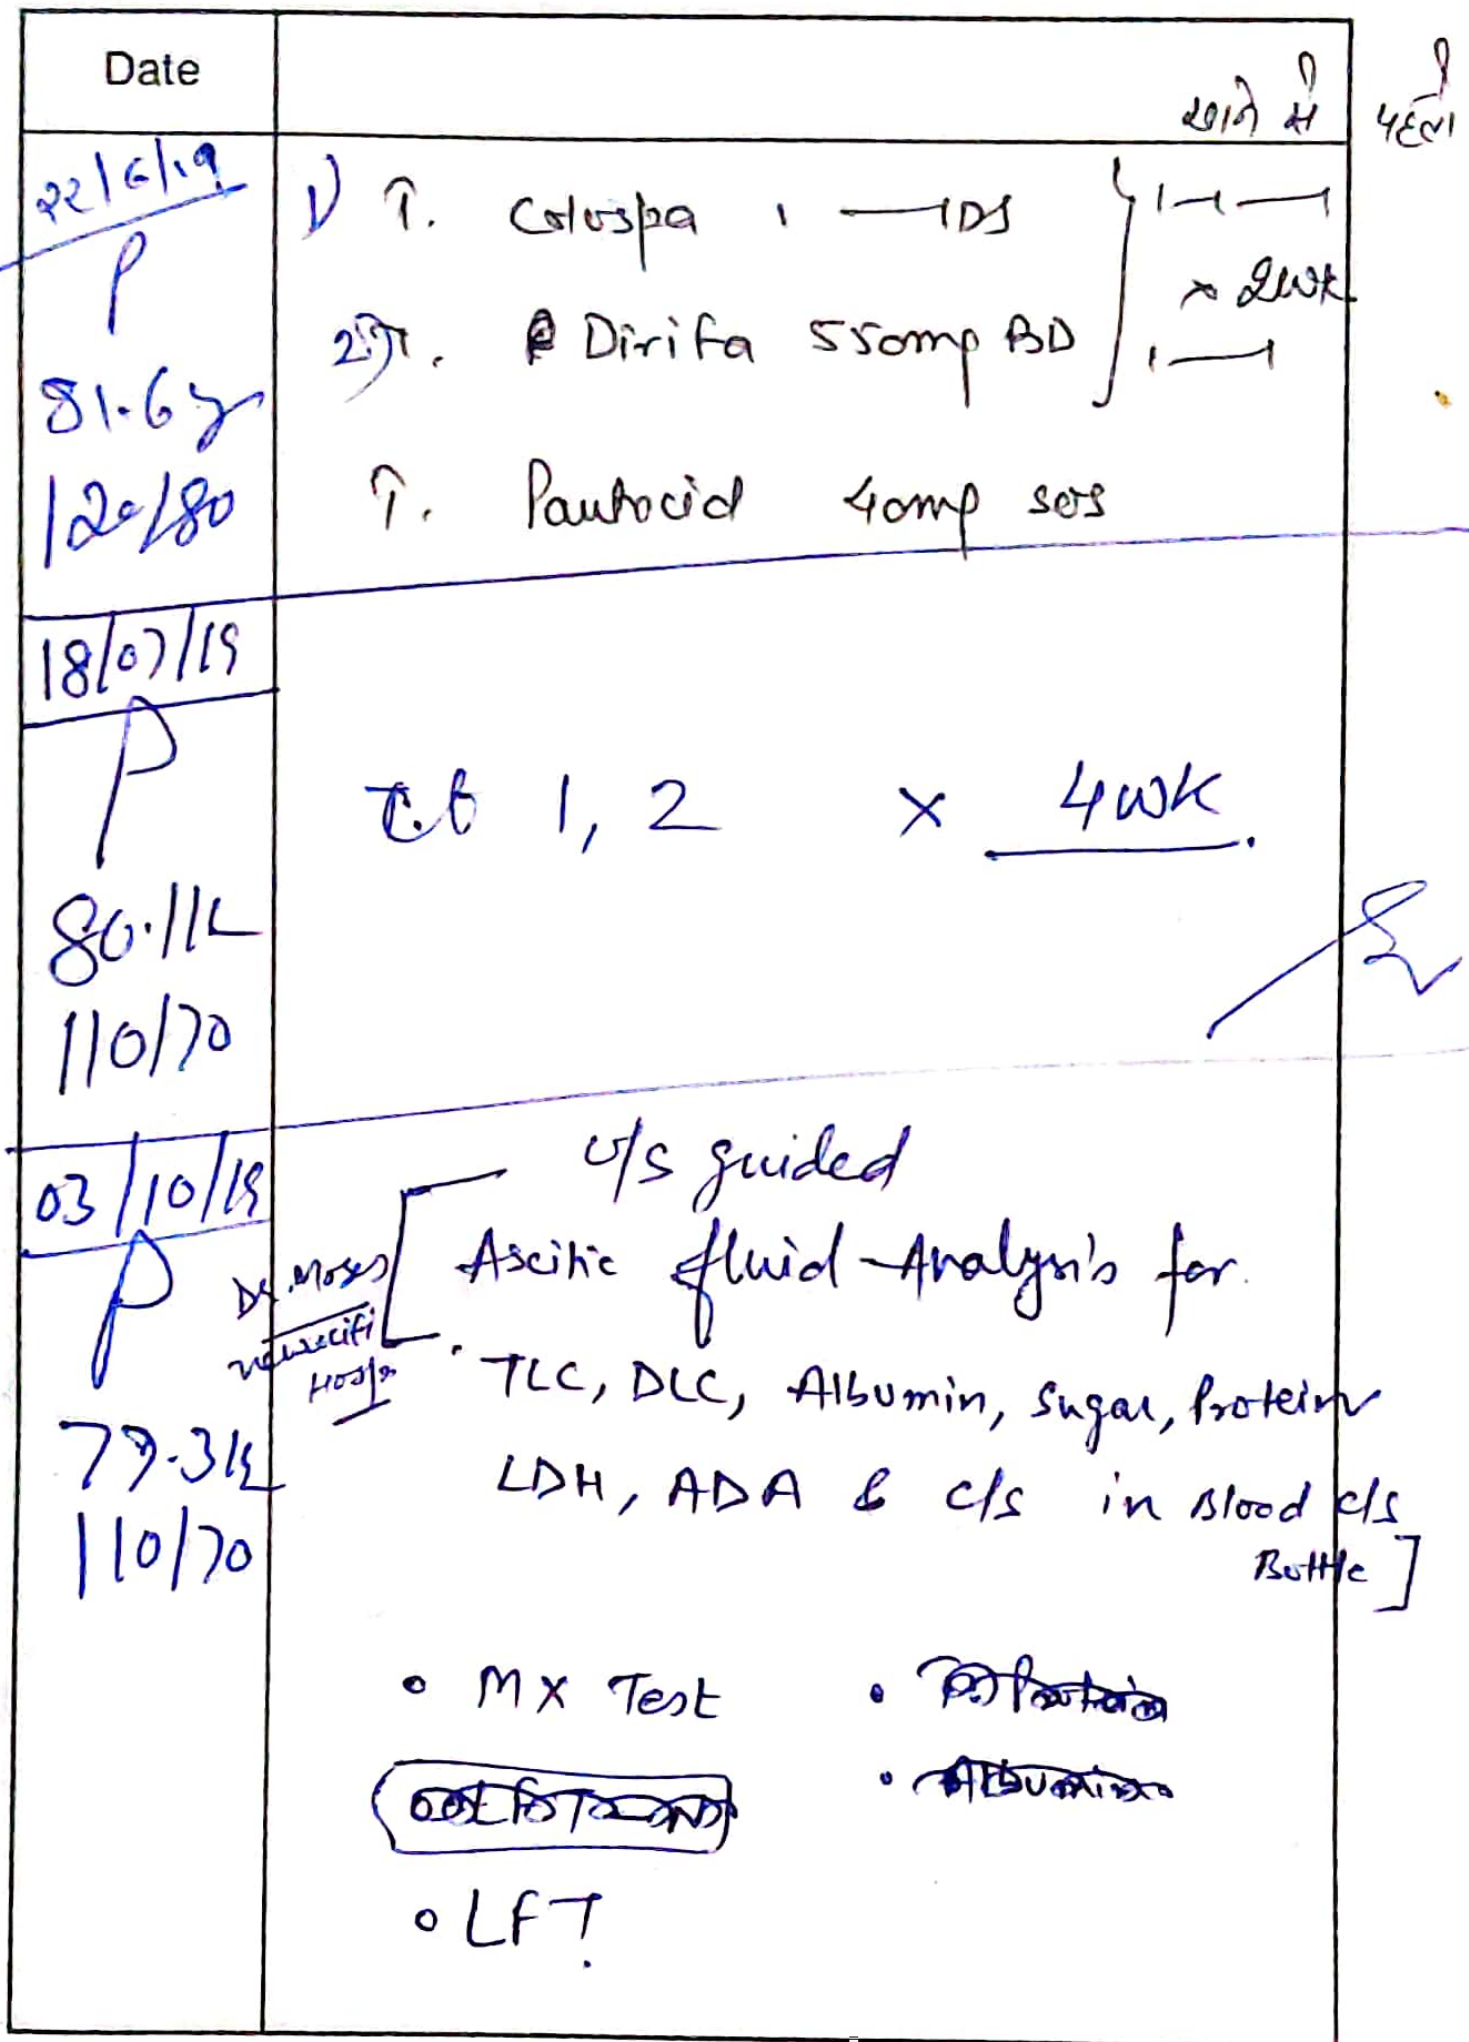 Date
खाने से पहले
22/6/19
P
81.6
120/80
1) T. Colospa 1 — TDS
1—1—1
x 2wk
2) T. Dirifa 550mg BD
1—1
T. Pantocid 40mg sos
18/07/19
P
80.1k
110/70
1, 2 x 4wk.
03/10/19
P
79.3k
110/70
Dr. Moses
Hosp
[ U/S guided
Ascitic fluid Analysis for
TLC, DLC, Albumin, Sugar, Protein
LDH, ADA & c/s in Blood c/s
Bottle ]
• MX Test
• LFT